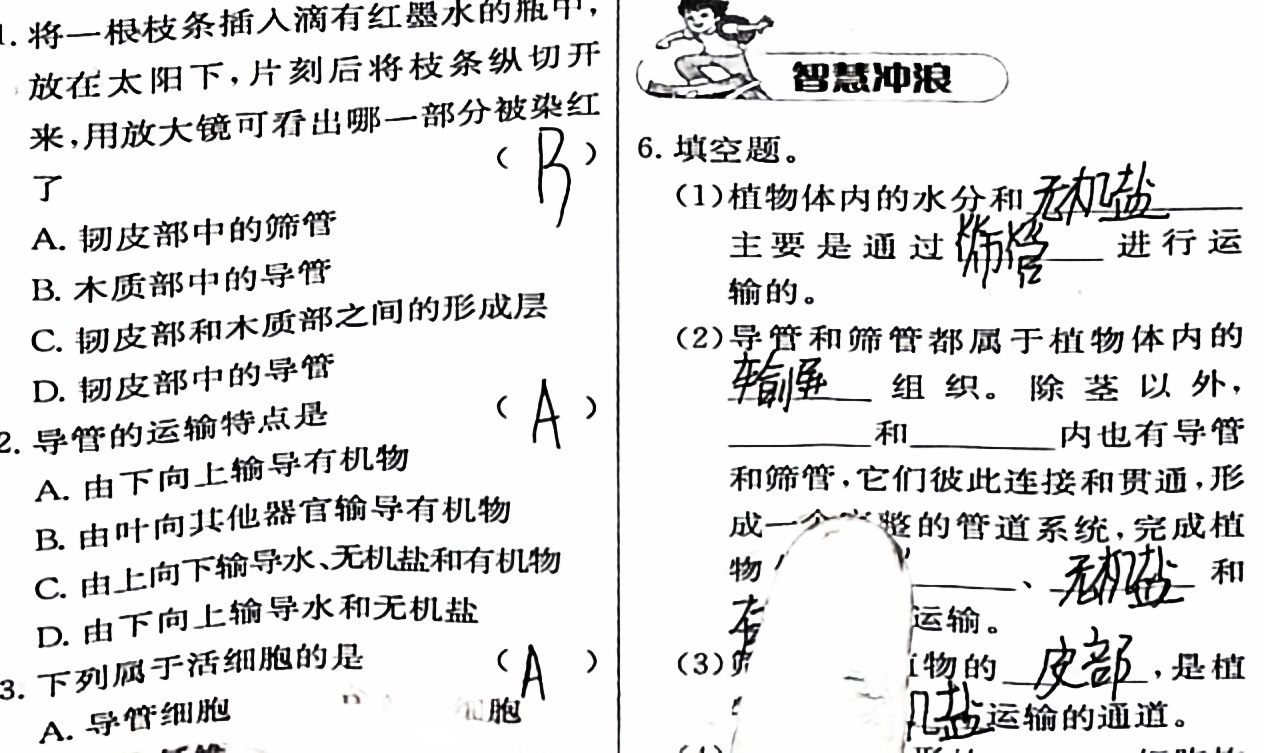 1. 将一根枝条插入滴有红墨水的瓶中,
放在太阳下,片刻后将枝条纵切开
来,用放大镜可看出哪一部分被染红
了 ( B )
A. 韧皮部中的筛管
B. 木质部中的导管
C. 韧皮部和木质部之间的形成层
D. 韧皮部中的导管
2. 导管的运输特点是 ( A )
A. 由下向上输导有机物
B. 由叶向其他器官输导有机物
C. 由上向下输导水、无机盐和有机物
D. 由下向上输导水和无机盐
3. 下列属于活细胞的是 ( A )
A. 导管细胞 胞
智慧冲浪
6. 填空题。
(1)植物体内的水分和无机盐
主要是通过筛管进行运
输的。
(2)导管和筛管都属于植物体内的
输导组织。除茎以外,
和 内也有导管
和筛管,它们彼此连接和贯通,形
成一个完整的管道系统,完成植
物 、无机盐和
有 运输。
(3) 物的皮部,是植
盐运输的通道。